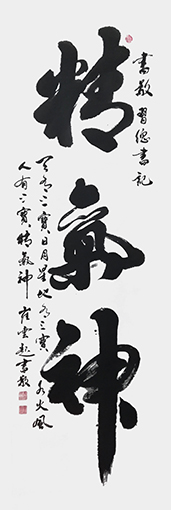 書敬 習總書記
精氣神
天有三寶日月星地有三寶水火風
人有三寶精氣神 崔雲起書敬